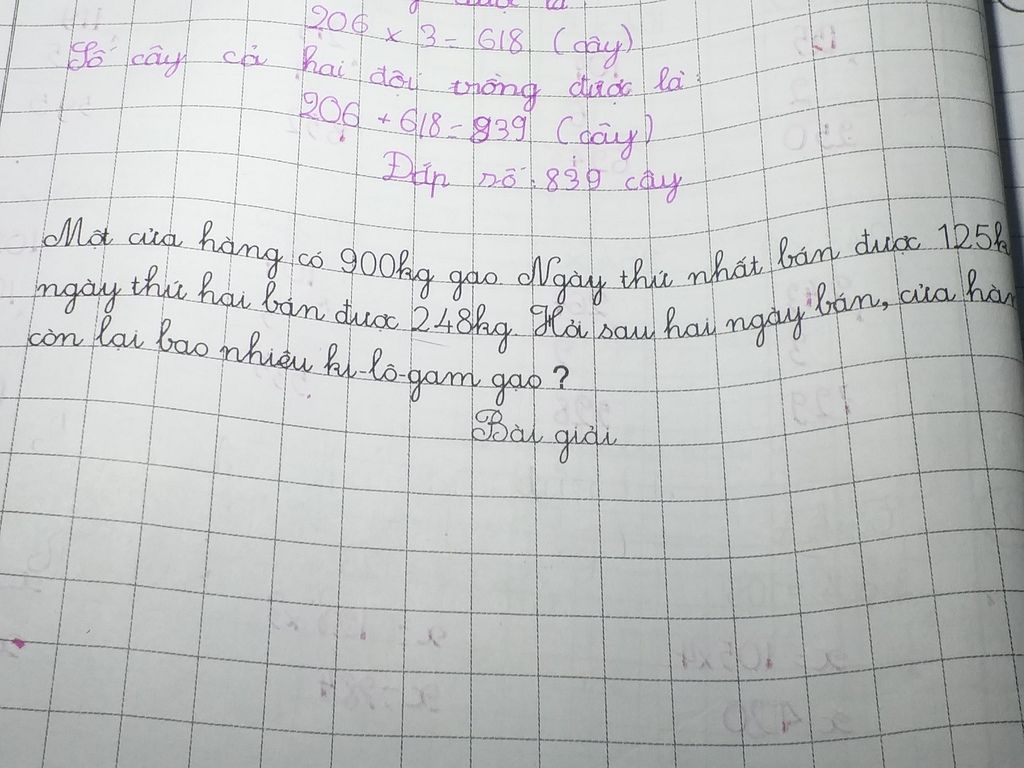 206 x 3 = 618 (cây)
Số cây cả hai đội trồng được là
206 + 618 = 839 (cây)
Đáp số: 839 cây
Một cửa hàng có 900kg gạo. Ngày thứ nhất bán được 125k
ngày thứ hai bán được 248kg. Hỏi sau hai ngày bán, cửa hàn
còn lại bao nhiêu ki-lô-gam gạo?
Bài giải